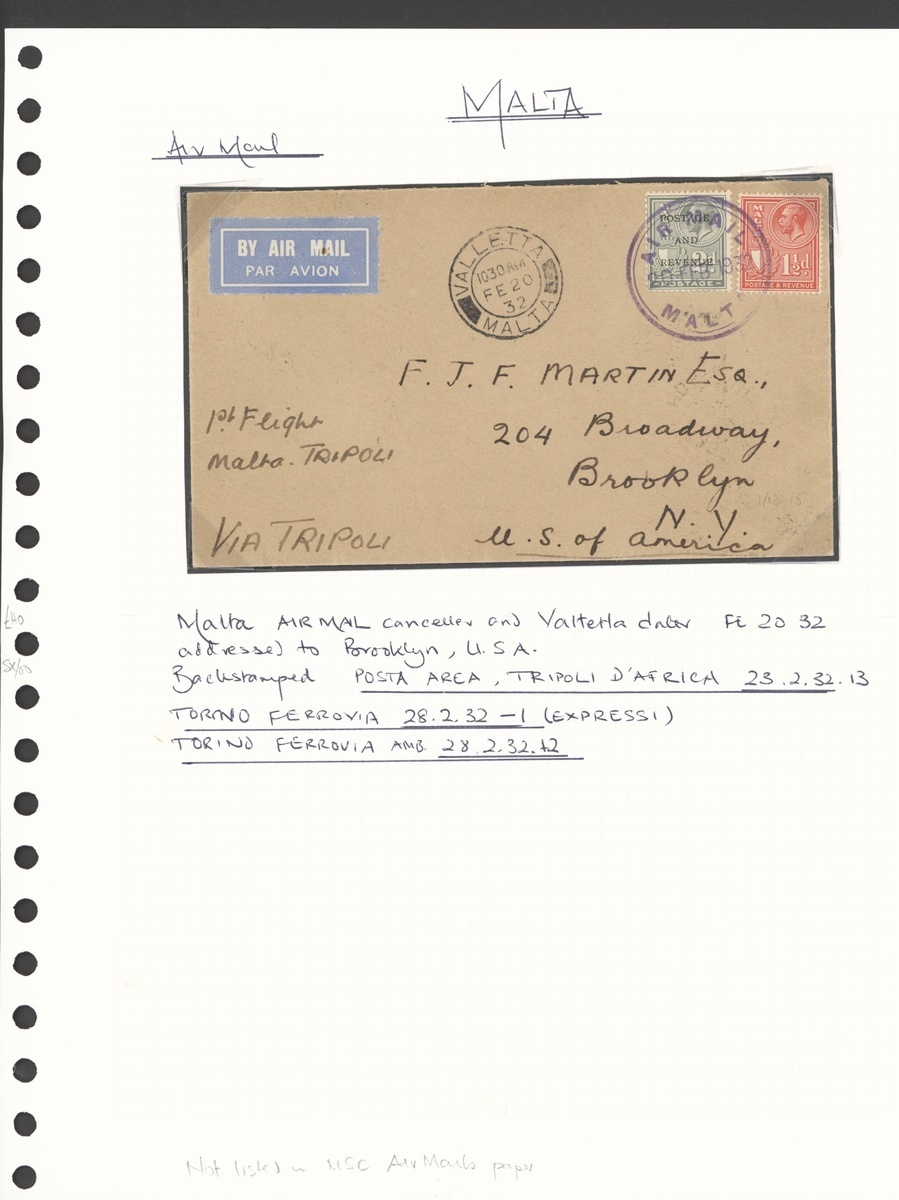 MALTA
Air Mail
BY AIR MAIL
PAR AVION
VALLETTA
10 30 AM
FE 20
32
MALTA
POSTAGE
AND
REVENUE
POSTAGE
1½d
POSTAGE & REVENUE
AIR MAIL
MALTA
F. J. F. MARTIN ESQ.,
204 Broadway,
Brooklyn
N. Y.
U. S. of america
1st Flight
Malta - TRIPOLI
VIA TRIPOLI
Malta AIR MAIL canceller and Valletta dater FE 20 32
addressed to Brooklyn, U.S.A.
Backstamped POSTA AREA, TRIPOLI D'AFRICA 23.2.32.13
TORINO FERROVIA 28.2.32 -1 (EXPRESSI)
TORINO FERROVIA AMB. 28.2.32.12
£40
SX/00
Not listed in MSC Air Mails paper